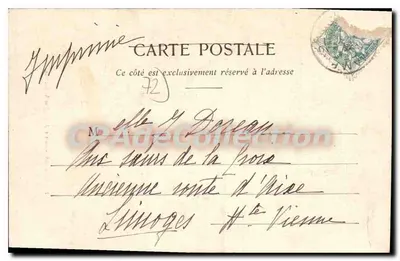 Imprimé
CARTE POSTALE
Ce côté est exclusivement réservé à l'adresse
72
Melle Y Doreau
Aux sœurs de la Croix
Ancienne route d'Aixe
Limoges Hte Vienne